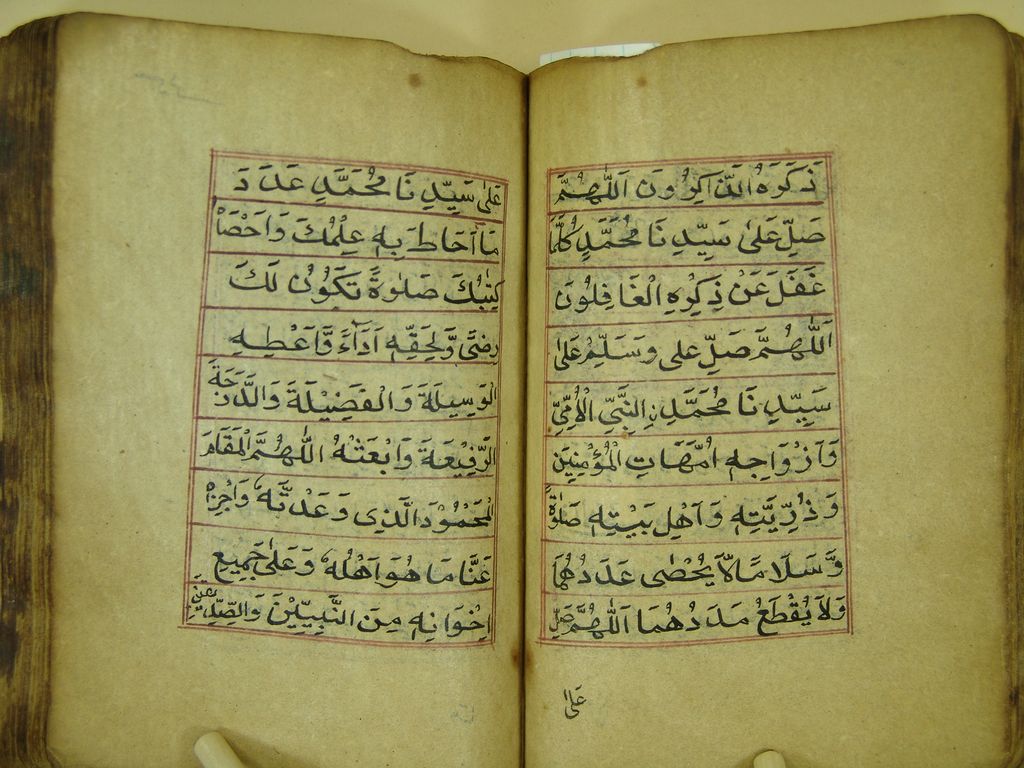 ذَكَرَهُ الذَّاكِرُونَ اَللّٰهُمَّ
صَلِّ عَلٰى سَيِّدِنَا مُحَمَّدٍ كُلَّمَا
غَفَلَ عَنْ ذِكْرِهِ الْغَافِلُونَ
اَللّٰهُمَّ صَلِّ على وَسَلِّمْ عَلٰى
سَيِّدِنَا مُحَمَّدِ نِ النَّبِيِّ الْاُمِّيِّ
وَاَزْوَاجِهِ اُمَّهَاتِ الْمُؤْمِنِيَن
وَذُرِّيَّتِهِ وَاَهْلِ بَيْتِهِ صَلٰوةً
وَّسَلَامًا لَّا يُحْصٰى عَدَدُهُمَا
وَلَا يُقْطَعُ مَدَدُهُمَا اَللّٰهُمَّ صَلِّ
عَلٰى
عَلٰى سَيِّدِنَا مُحَمَّدٍ عَدَدَ
مَا اَحَاطَ بِهِ عِلْمُكَ وَاَحْصَاهُ
كِتٰبُكَ صَلٰوةً تَكُوْنُ لَكَ
رِضًى وَّلِحَقِّهِ اَدَاءً وَّاَعْطِهِ
الْوَسِيلَةَ وَالْفَضِيْلَةَ وَالدَّرَجَةَ
الرَّفِيْعَةَ وَابْعَثْهُ اللّٰهُمَّ الْمَقَامَ
الْمَحْمُوْدَ الَّذِى وَعَدْتَّهُ وَاجْزِهْ
عَنَّا مَا هُوَ اَهْلُهُ وَعَلٰى جَمِيعِ
اِخْوَانِهِ مِنَ النَّبِيِّيْنَ وَالصِّدِّيقِيْنَ